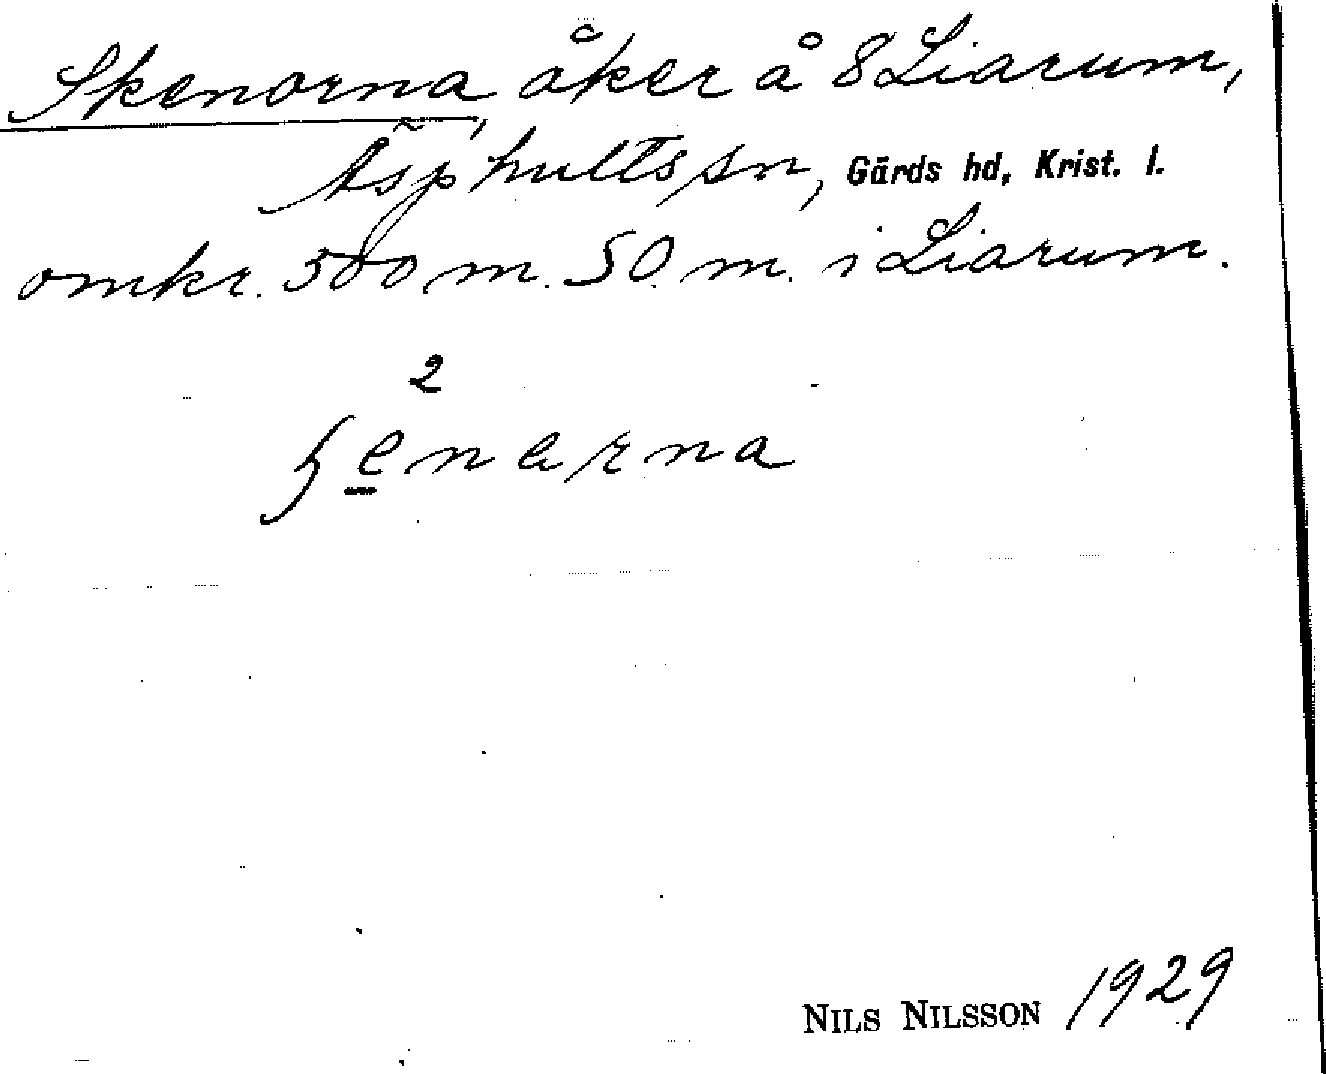 Skenorna, åker å 8 Liarum,
Äsphults sn, Gärds hd, Krist. l.
omkr. 500 m. SO. m. i Liarum.
2
ʃenarna
NILS NILSSON 1929